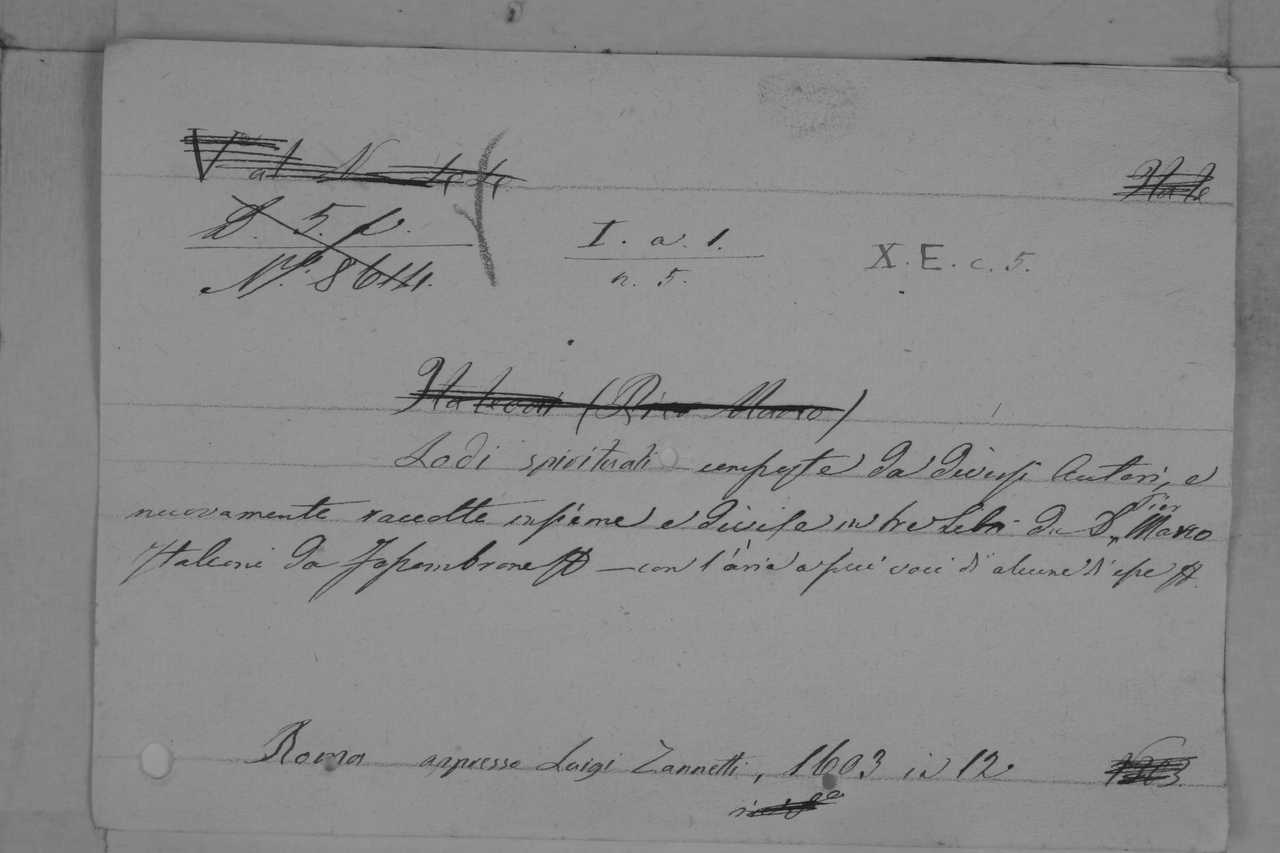 D. 5. f.
N.º 8644.
I. a. 1.
n. 5.
X. E. c. 5.
Italeoni (Pier Marco)
Lodi spirituali composte da diversi Autori, e
nuovamente raccolte insieme e divise in tre Libri da D. Pier Marco
Italeoni da Fossombrone — con l'aria a più voci di alcune di esse
Roma appresso Luigi Zannetti, 1603 in 12